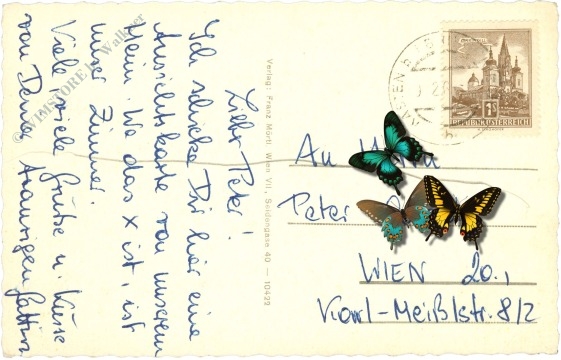 Lieber Peter!
Ich schicke Dir hier eine
Ansichtskarte von unserem
Heim. Wo das x ist, ist
unser Zimmer.
Viele, viele Grüße u. Küsse
von Deiner traurigen Gattin
Verlag: Franz Mörtl Wien VII, Seidengasse 40 — 10422
1S
REPUBLIK ÖSTERREICH
An Herrn
Peter
WIEN 20.,
Karl-Meißlstr. 8/2